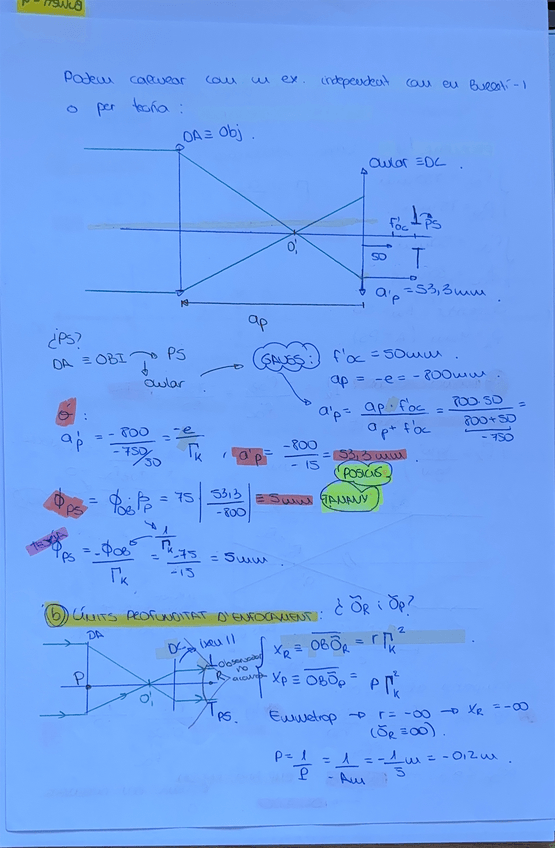 Podem calcular com un ex. independent com en Burcstí-1
o per teoria:
DA ≡ Obj.
ocular ≡ DC.
f'oc
PS
O'₁
50
a'p = 53,3mm.
ap
¿PS?
DA ≡ OBJ → PS
ocular
GAUSS:
f'oc = 50mm.
ap = -e = -800mm
a'p = ap · f'oc / ap + f'oc = 800·50 / 800+50 =
-750
ó:
a'p = -800 / -750/50 = -e / Γk , a'p = -800 / -15 = 53,3mm
POSICIÓ
ϕPS = ϕOB · βp = 75 | 53,3 / -800 | = 5mm TAMANY
1/Γk
ϕPS = -ϕOB / Γk = -75 / -15 = 5mm.
b) LÍMITS PROFUNDITAT D'ENFOCAMENT: ¿ÕR i ÕP?
DA
DC
ull
observador
no
P
R
O'₁
PS.
XR ≡ OBÕR = r Γk²
XP ≡ OBÕP = p Γk²
Emmetrop → r = -∞ → XR = -∞
(ÕR ≡ ∞).
P = 1/P = 1/-Am = -1/5 m = -0,2m.